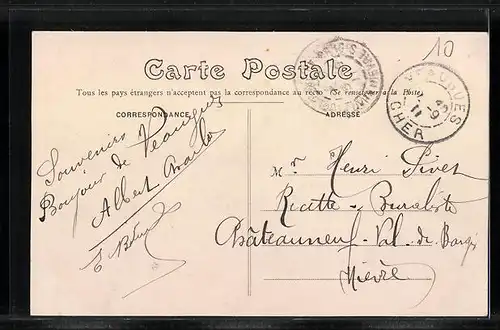 10
Carte Postale
Tous les pays étrangers n'acceptent pas la correspondance au recto (Se renseigner à la Poste)
CORRESPONDANCE
ADRESSE
VEAUGUES
CHER
11
Souvenirs
Bonjour de Veaugues
Albert
Mr Henri
Recette-Buraliste
Châteauneuf-Val de Bargis
Nièvre